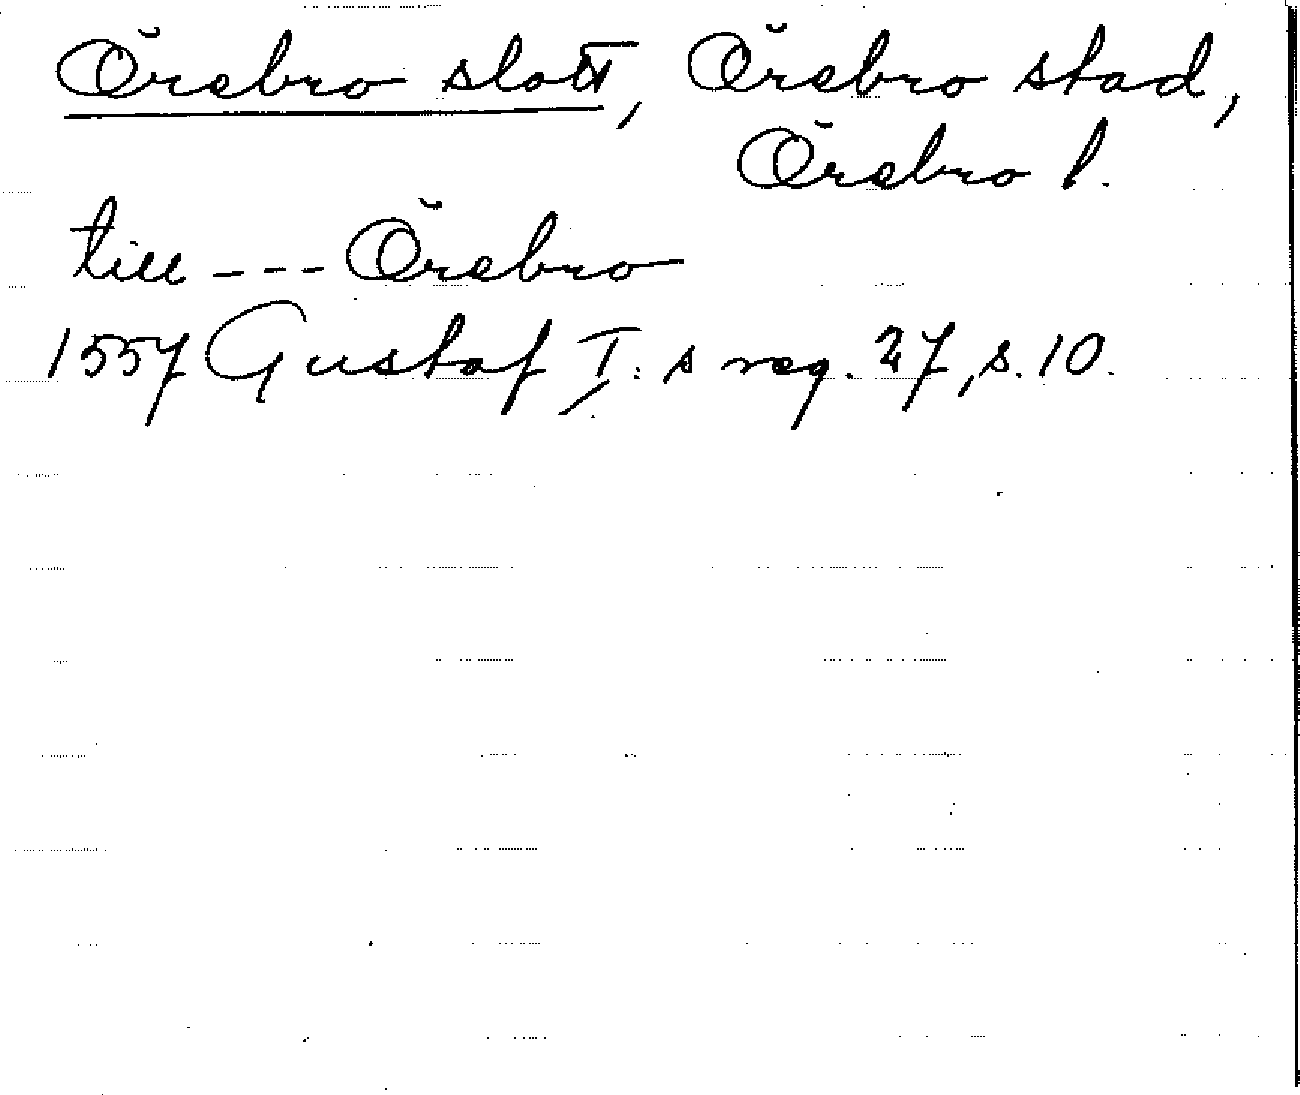 Örebro slott, Örebro stad,
Örebro l.
till --- Örebro
1557 Gustaf I:s reg. 27, s. 10.